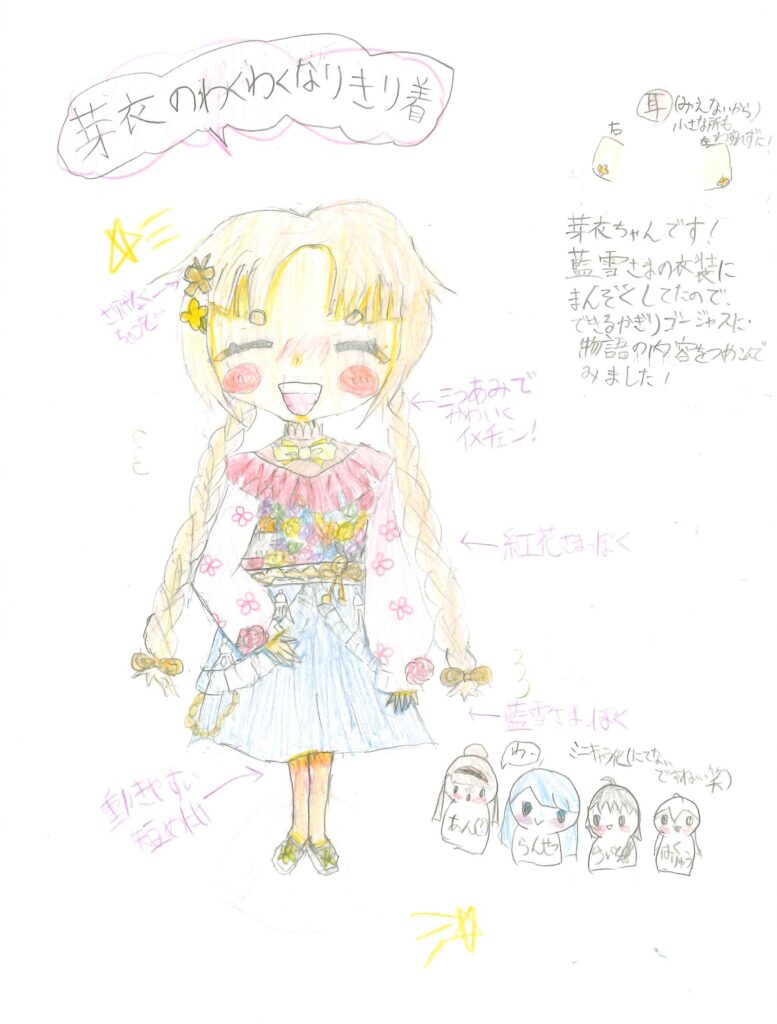 芽衣のわくわくなりきり着
耳(みえないから)
小さな所も
わすれずに!
右
左
芽衣ちゃんです!
藍雪さまの衣装に
まんぞくしてたので、
できるかぎりゴージャスに・
物語の内容をつめこんで
みました!
さりげなく
三つあみで
かわいく
イメチェン!
紅花さまっぽく
藍雪さまっぽく
動きやすい
短めたけ
わー
ミニキャラ化(にてない
ですねい笑)
あん
らんせつ
はくりゅう